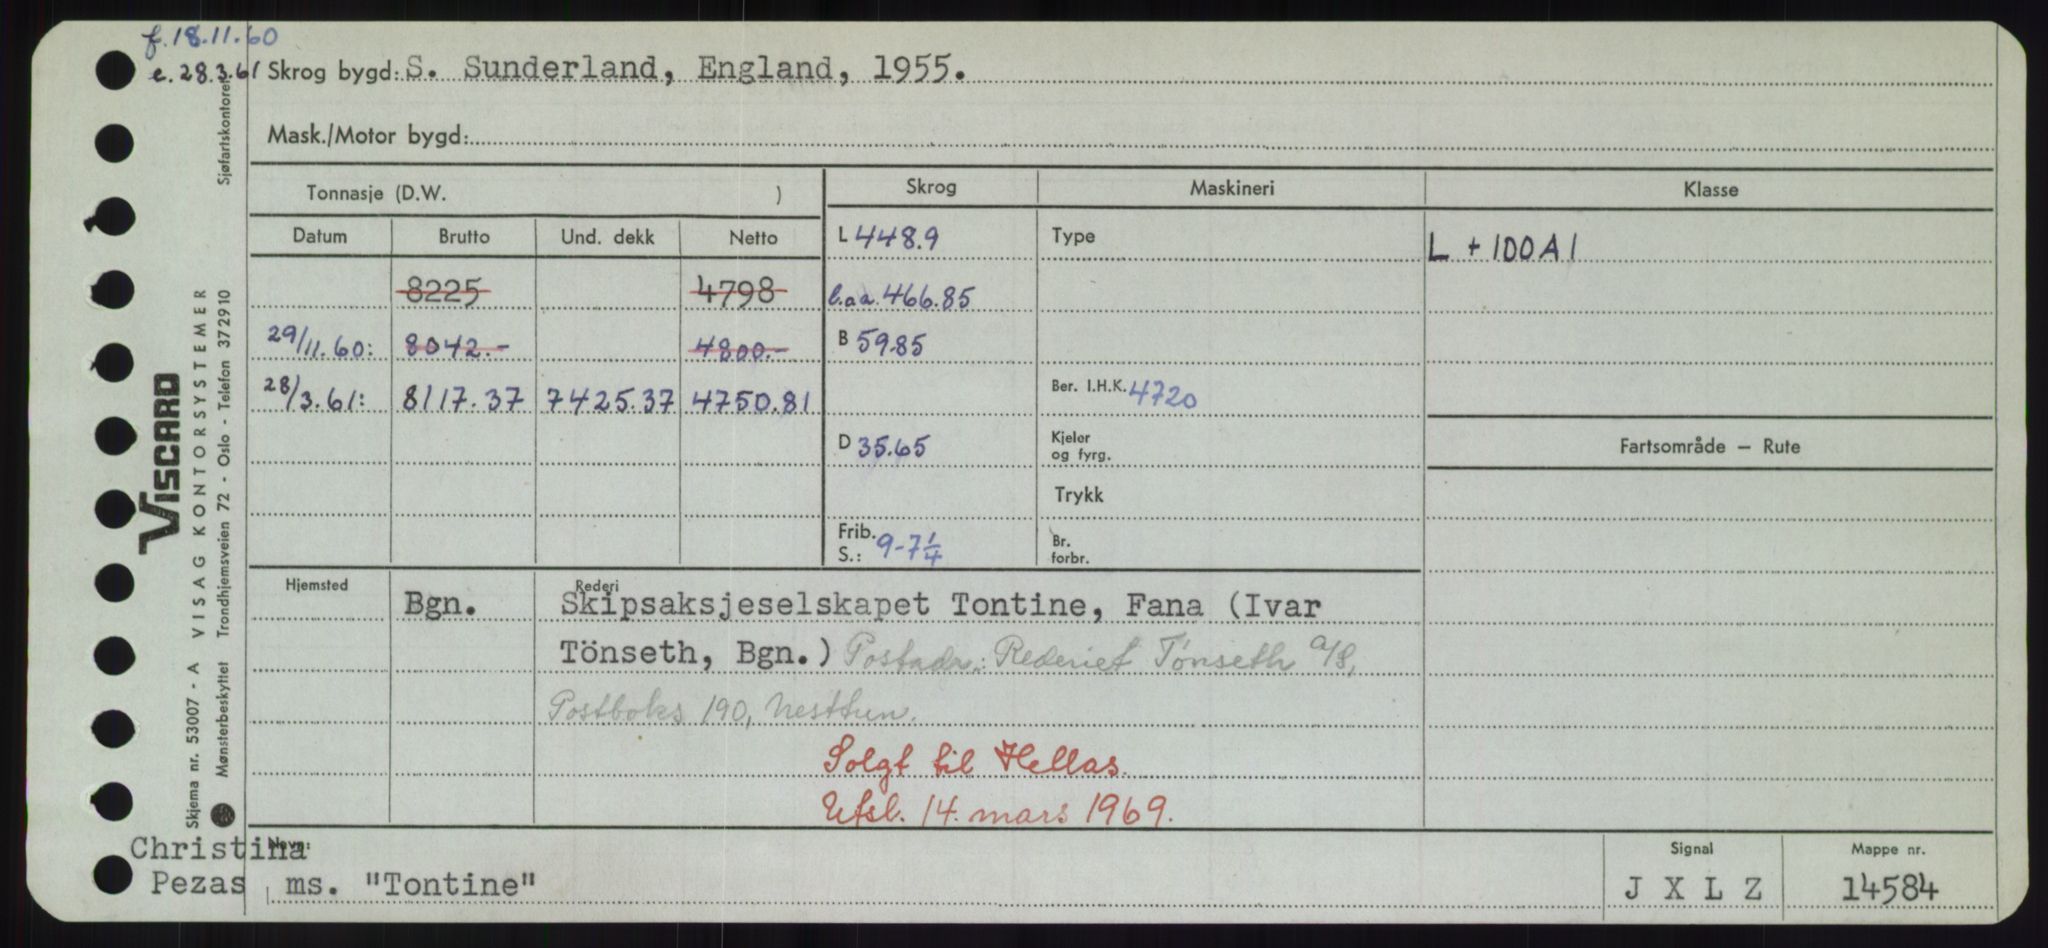 f. 18.11.60
e. 28.3.61 Skrog bygd: S. Sunderland, England, 1955.
Mask./Motor bygd:
Tonnasje (D.W. ) Skrog Maskineri Klasse
Datum Brutto Und. dekk Netto L 448.9 Type L + 100 A 1
8225 4798 l.aa. 466.85
29/11.60: 8042.- 4800.- B 59.85
28/3.61: 8117.37 7425.37 4750.81 Ber. I.H.K. 4720
D 35.65 Kjeler og fyrg. Fartsområde — Rute
Trykk
Frib. S.: 9-7 1/4 Br. forbr.
Hjemsted Rederi
Bgn. Skipsaksjeselskapet Tontine, Fana (Ivar
Tönseth, Bgn.) Postadr.: Rederiet Tönseth a/s,
Postboks 190, Nesttun.
Solgt til Hellas.
Utsl. 14. mars 1969.
Navn: Signal Mappe nr.
Christina
Pezas ms. "Tontine" J X L Z 14584
VISCARD
Skjema nr. 53007 - A VISAG KONTORSYSTEMER
Mønsterbeskyttet Trondhjemsveien 72 - Oslo - Telefon 372910 Sjøfartskontoret